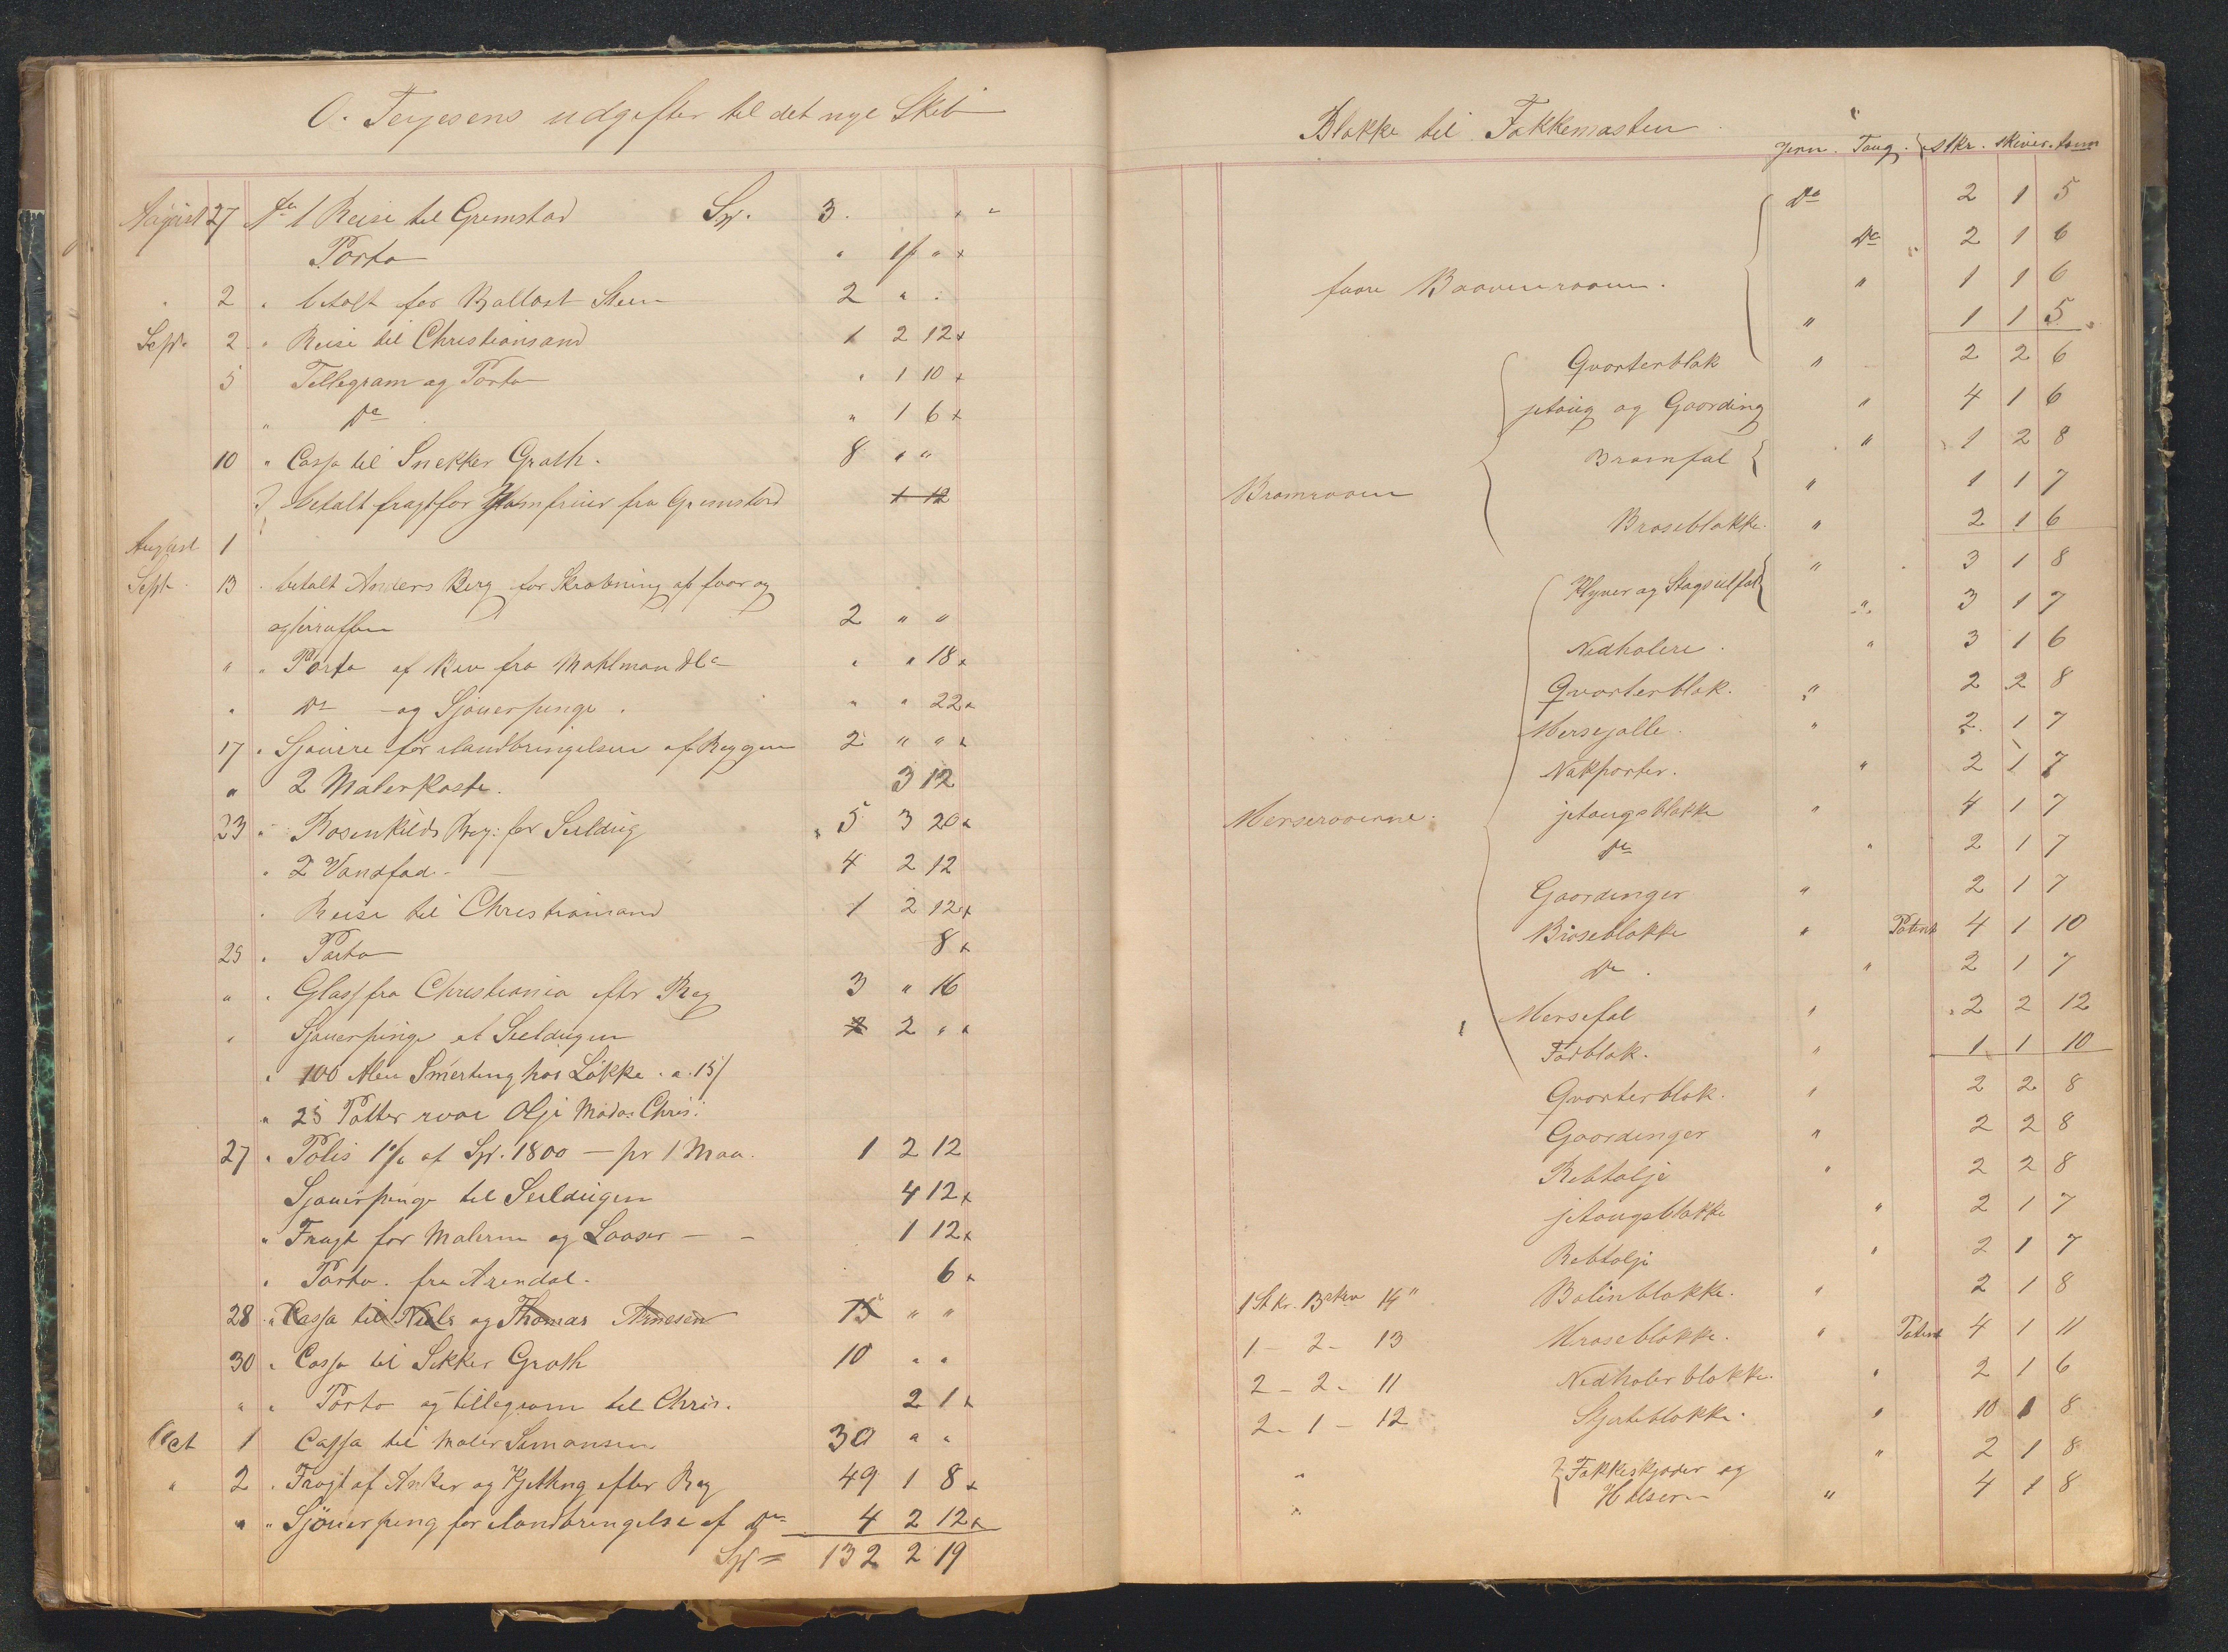 O. Terjesens udgifter til det nye Skib
August 27 1 Reise til Gremstad Sp. 3 " "
Porto " 1 " x
" 2 " betalt for Ballast Steen 2 " "
Sept. 2 " Reise til Christiansand 1 2 12 x
5 Tellegram og Porto " 1 10 x
" Do " 1 6 x
10 " Cassa til Snekker Groth. 8 " "
betalt fragt for fra Gremstad 1 12
August 1
Sept 13 " betalt Anders Berg for Skrabning af foor og
agterraffen 2 " "
" " Porto af Brev fra Mahlman " " 18 x
" Do og Sjouerpenge. " " 22 x
17 " Sjouere for ilandbringelsen af Reggen 2 " " x
" 2 Malerkoste. 3 12
23 " Rosenkilds Reg: for Seildug 5 3 20 x
" 2 Vandfad - 4 2 12
" Reise til Christiansand 1 2 12 x
25 " Porto 8 x
" " Glass fra Christiania efter Reg 3 " 16
" Sjouerpenge at Seildugen 2 " "
" 100 Alen Smerting hos Løkke. a. 15/
" 25 Potter rvoe Olje Chris:
27 " Polis 1% af Sp. 1800 — pr 1 Maa. 1 2 12
Sjouerpenge til Seildugen 4 12 x
" Fragt for Malerne og Laaser - - 1 12 x
" Porto. fra Arendal. 6 x
28 " Cassa til Niels og Thomas Arnesen 15 " "
30 " Cassa til Sekker Groth 10 " "
" " Porto og tellegram til Chris. 2 1 x
Oct 1 Cassa til Maler Simonsen 30 " "
" 2 " Fragt af Anker og Kjetting efter Reg 49 1 8 x
" " Sjouerpeng for ilandbringelse af Do 4 2 12 x
Sp = 132 2 19
Blokke til Fokkemasten
Jern. Toug. Stkr. skiver. tom
Do 2 1 5
Do 2 1 6
foore Boovenraaen. " 1 1 6
" 1 1 5
Qvorterblok " 2 2 6
jitoug og Goording " 4 1 6
Bramfal " 1 2 8
Bramraaen " 1 1 7
Braseblokke. " 2 1 6
Klyver og Stagseilfal " 3 1 8
" 3 1 7
Nedholere. " 3 1 6
Qvorterblok. " 2 2 8
Mersejolle. " 2 1 7
Nokporter. " 2 1 7
Merseraaerne. jitougsblokke " 4 1 7
Do " 2 1 7
Goordinger " 2 1 7
Braseblokke " Patent 4 1 10
Do. " 2 1 7
Mersefal " 2 2 12
Fodblok. " 1 1 10
Qvorterblok. " 2 2 8
Goordinger " 2 2 8
Rebtalje " 2 2 8
jitougsblokke " 2 1 7
Rebtalje " 2 1 7
1 Stkr. 3 skv 14" Bolinblokke. " 2 1 8
1 - 2 - 13 Braseblokke. " Patent 4 1 11
2 - 2 - 11 Nedholerblokke. " 2 1 6
2 - 1 - 12 Skjøteblokke. " 10 1 8
" Fokkeskjøder og " 2 1 8
" Halsern " 4 1 8